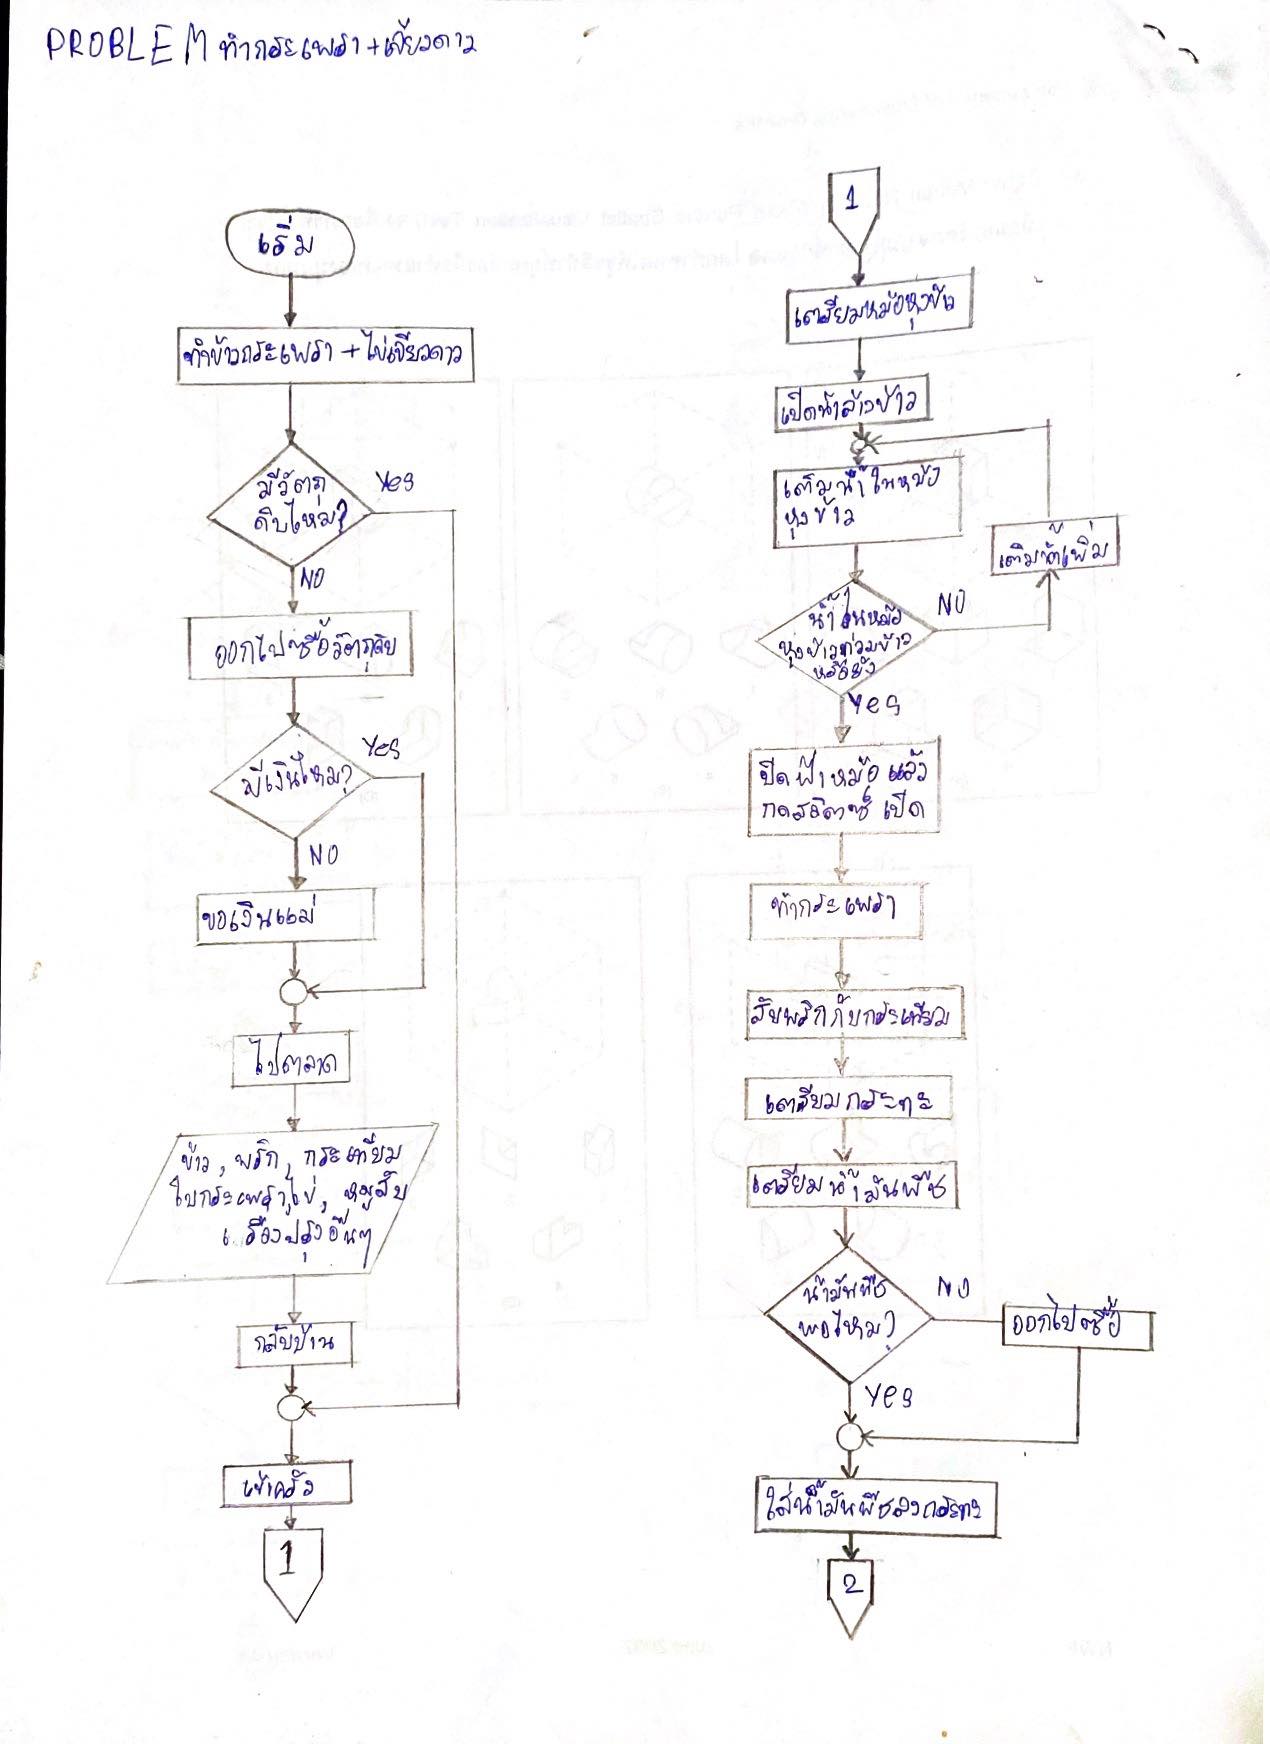 PROBLEM ทำกระเพรา+เจียวดาว
เริ่ม
ทำข้าวกระเพรา + ไข่เจียวดาว
มีวัตถุ
ดิบไหม?
Yes
NO
ออกไปซื้อวัตถุดิบ
มีเงินไหม?
Yes
NO
ขอเงินแม่
ไปตลาด
ข้าว, พริก, กระเทียม
ใบกระเพรา, ไข่, หมูสับ
เครื่องปรุงอื่นๆ
กลับบ้าน
เข้าครัว
1
1
เตรียมหม้อหุงข้าว
เปิดน้ำล้างข้าว
เติมน้ำในหม้อ
หุงข้าว
เติมน้ำเพิ่ม
น้ำในหม้อ
หุงข้าวท่วมข้าว
หรือยัง
NO
Yes
ปิดฝาหม้อแล้ว
กดสวิตซ์ เปิด
ทำกระเพรา
สับพริกกับกระเทียม
เตรียมกระทะ
เตรียมน้ำมันพืช
น้ำมันพืช
พอไหม?
NO
ออกไปซื้อ
Yes
ใส่น้ำมันพืชลงกระทะ
2